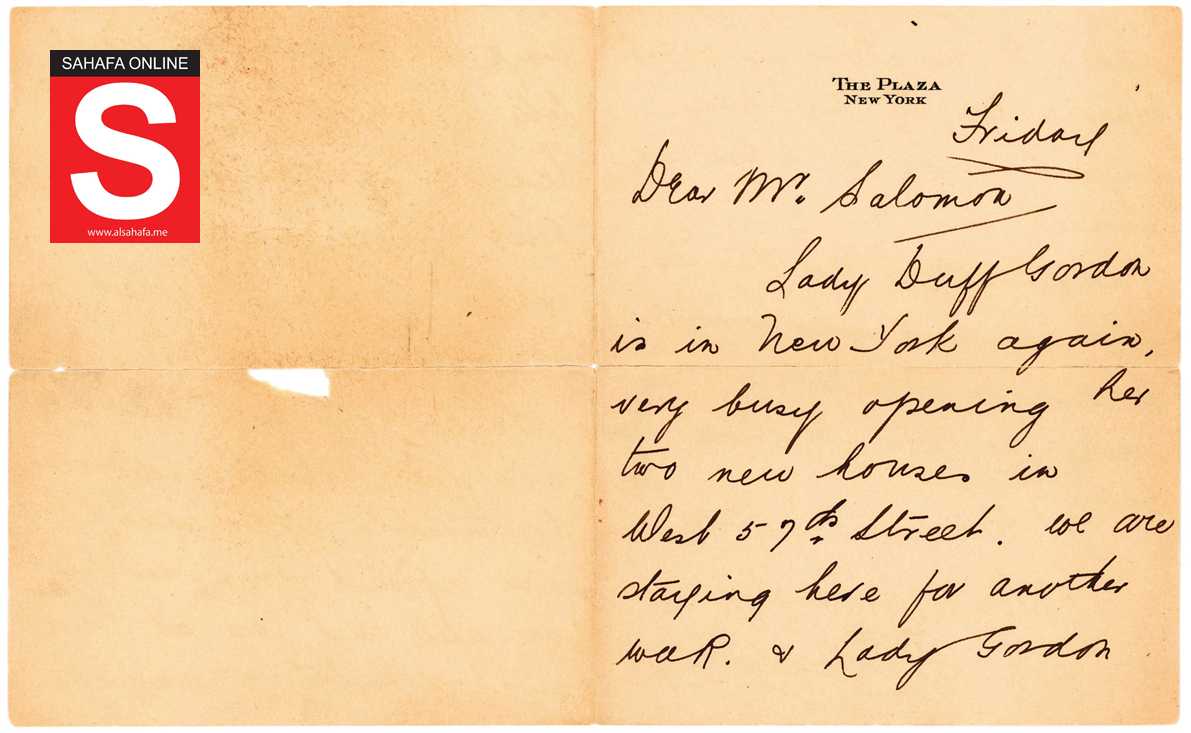 SAHAFA ONLINE
S
www.alsahafa.me
THE PLAZA
NEW YORK
Friday
Dear Mr. Salomon
Lady Duff Gordon
is in New York again,
very busy opening her
two new houses in
West 57th Street. we are
staying here for another
week. & Lady Gordon